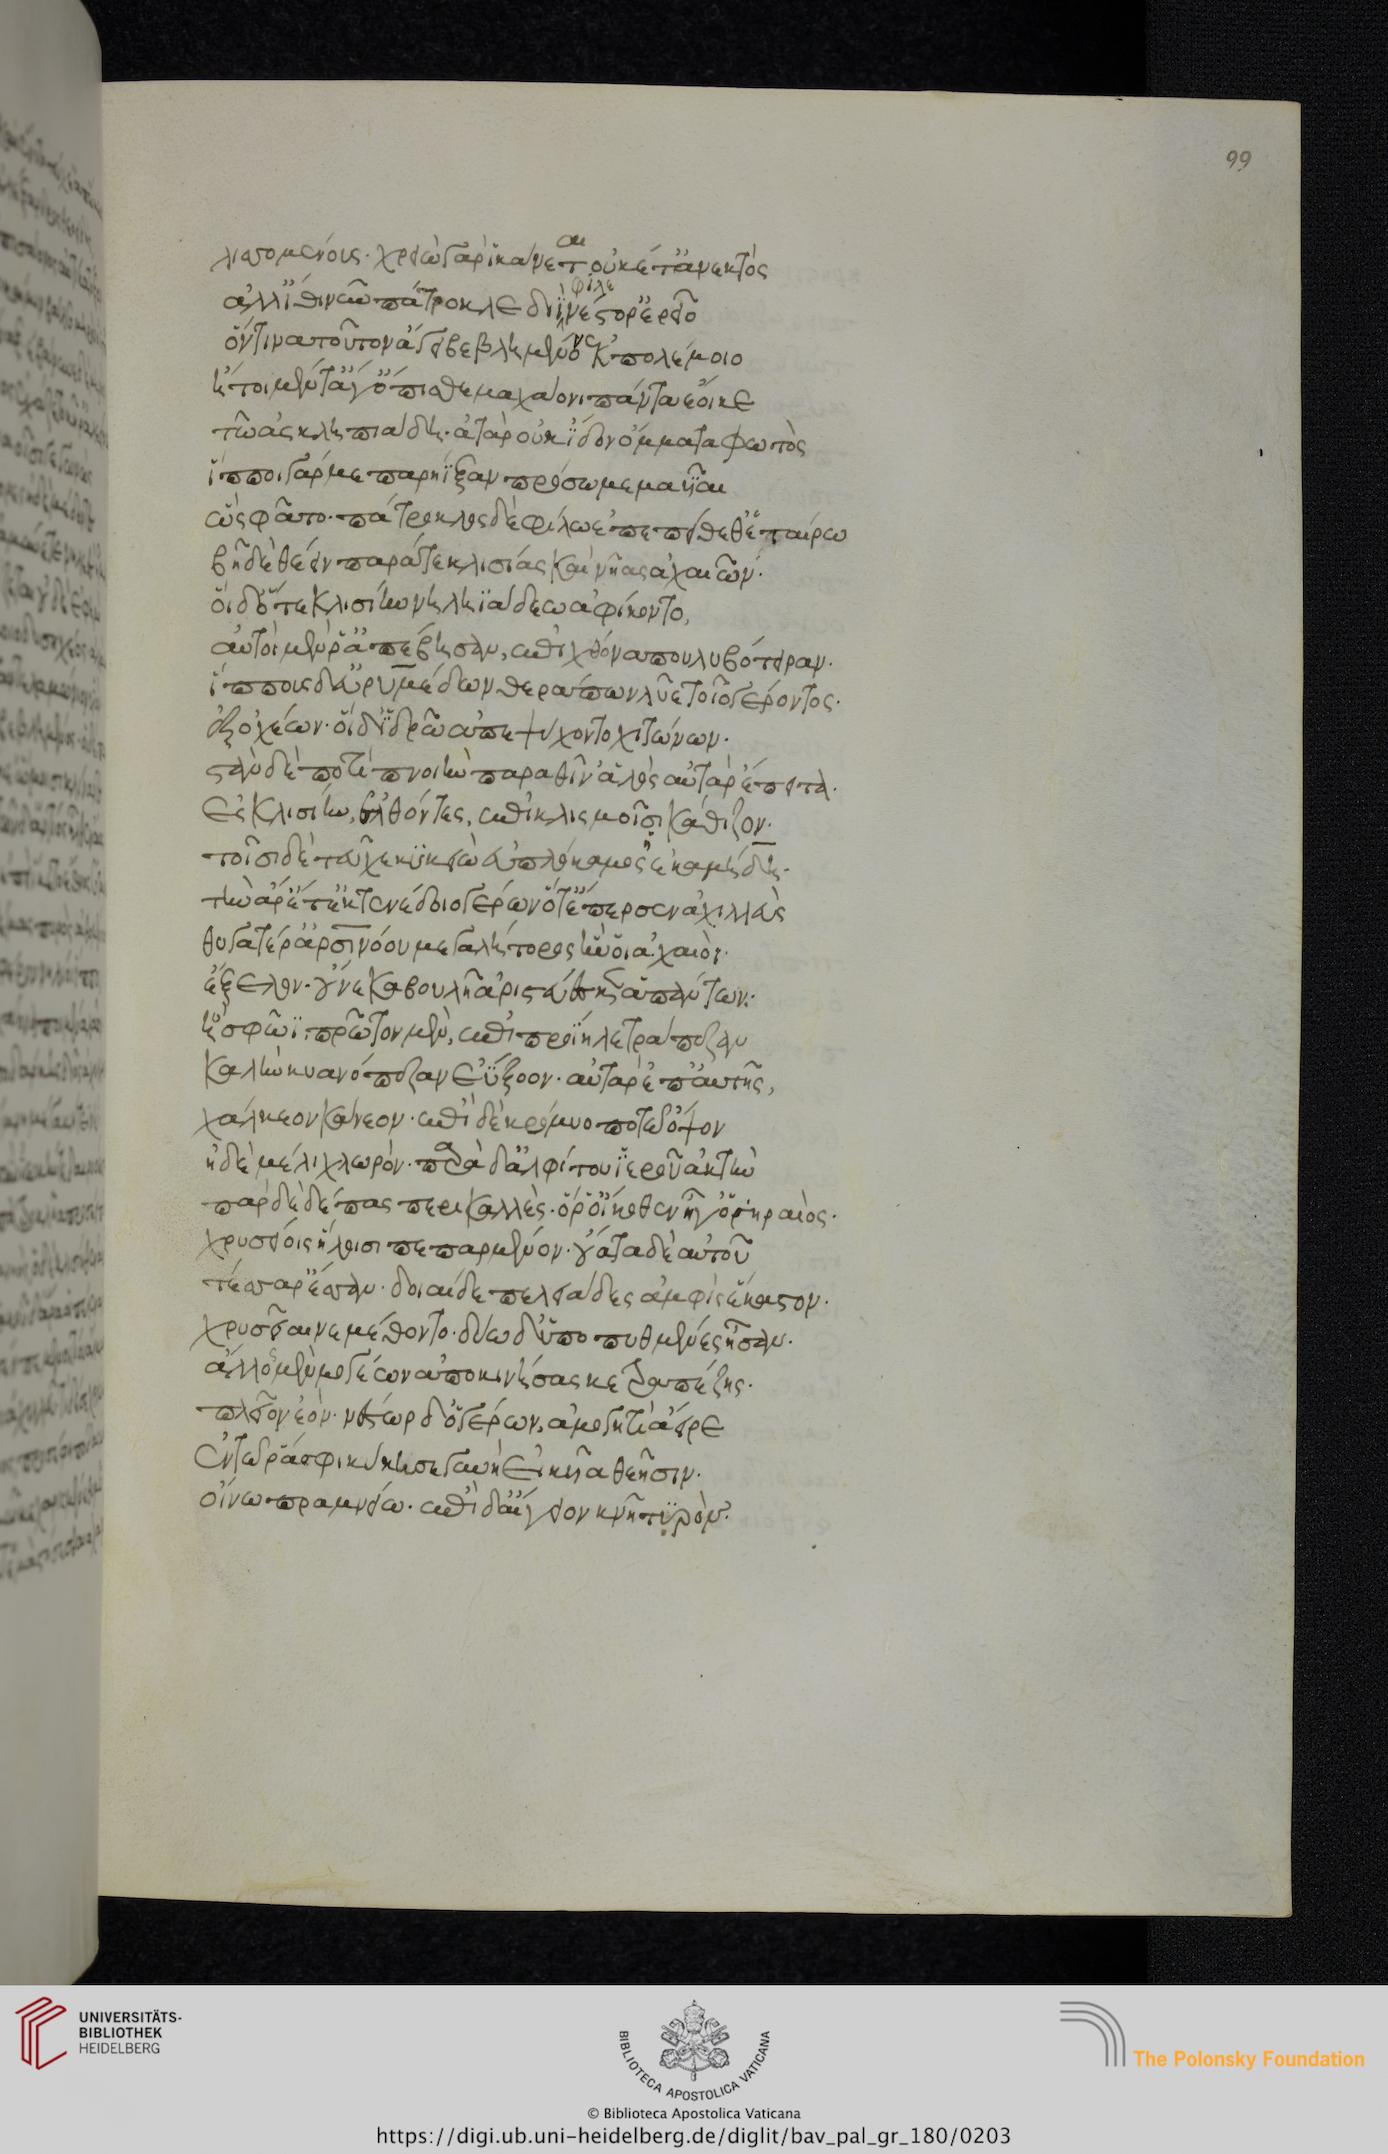 99
λισσομένους· χρειὼ γὰρ ἱκάνεται οὐκέτ' ἀνεκτὸς
ἀλλ' ἴθι νῦν πάτροκλε διῒ φίλε νέστορ' ἔρειο
ὅντινα τοῦτον ἄγει βεβλημένον ἐκ πολέμοιο
ἤτοι μὲν τά γ' ὄπισθε μαχάονι πάντα ἔοικε
τῶ ἀσκληπιάδη· ἀτὰρ οὐκ ἴδον ὄμματα φωτὸς
ἵπποι γάρ με παρήϊξαν πρόσω μεμαυῖαι
ὣς φάτο· πάτροκλος δὲ φίλω ἐπεπείθεθ' ἑταίρω
βῆ δὲ θέειν παρά τε κλισίας καὶ νῆας ἀχαιῶν·
οἱ δ' ὅτε κλισίην νηληϊάδεω ἀφίκοντο,
αὐτοὶ μέν ῥ' ἀπέβησαν, ἐπὶ χθόνα πουλυβότειραν·
ἵππους δ' εὐρυμέδων θεράπων λῦε τοῖο γέροντος·
ἐξ ὀχέων· οἱ δ' ἱδρῶ ἀπεψύχοντο χιτώνων·
στὰν δὲ ποτὶ πνοιὴν παρὰ θῖν' ἁλός αὐτὰρ ἔπειτα·
ἐς κλισίην ἐλθόντες, ἐπὶ κλισμοῖσι κάθιζον·
τοῖσι δὲ τεῦχε κυκειῶ ἐϋπλόκαμος ἑκαμήδη·
τὴν ἄρετ' ἐκ τενέδοιο γέρων ὅτε πέρσεν ἀχιλλεὺς
θυγατέρ' ἀρσινόου μεγαλήτορος ἥν οἱ ἀχαιοὶ·
ἔξελον· οὕνεκα βουλῆ ἀριστεύεσκεν ἁπάντων·
ἥ σφωϊ πρῶτον μὲν, ἐπὶ προΐηλε τράπεζαν
καλὴν κυανόπεζαν ἐΰξοον· αὐτὰρ ἐπ' αὐτῆς,
χάλκεον κάνεον· ἐπὶ δὲ κρόμυο ποτῶ ὄψον
ἠδὲ μέλι χλωρόν· παρὰ δ' ἀλφίτου ἱεροῦ ἀκτὴν
παρ δὲ δέπας περικαλλὲς· ὃ οἴκοθεν ἦγ' ὁ γηραιός·
χρυσείοις ἥλοισι πεπαρμένον· οὔατα δ' αὐτοῦ
τέσσαρ' ἔσαν· δοιαὶ δὲ πελειάδες ἀμφὶς ἕκαστον·
χρύσειαι νεμέθοντο· δύω δ' ὑπὸ πυθμένες ἦσαν·
ἄλλος μὲν μογέων ἀποκινήσασκε τραπέζης·
πλεῖον ἐὸν· νέστωρ δ' ὁ γέρων, ἀμογητὶ ἄειρε
ἐν τῶ ῥά σφι κύκησε γυνὴ ἐϊκυῖα θεῆσιν·
οἴνω πραμνείω· ἐπὶ δ' αἴγειον κνῆ τυρὸν·
UNIVERSITÄTS-
BIBLIOTHEK
HEIDELBERG
BIBLIOTECA APOSTOLICA VATICANA
The Polonsky Foundation
© Biblioteca Apostolica Vaticana
https://digi.ub.uni-heidelberg.de/diglit/bav_pal_gr_180/0203